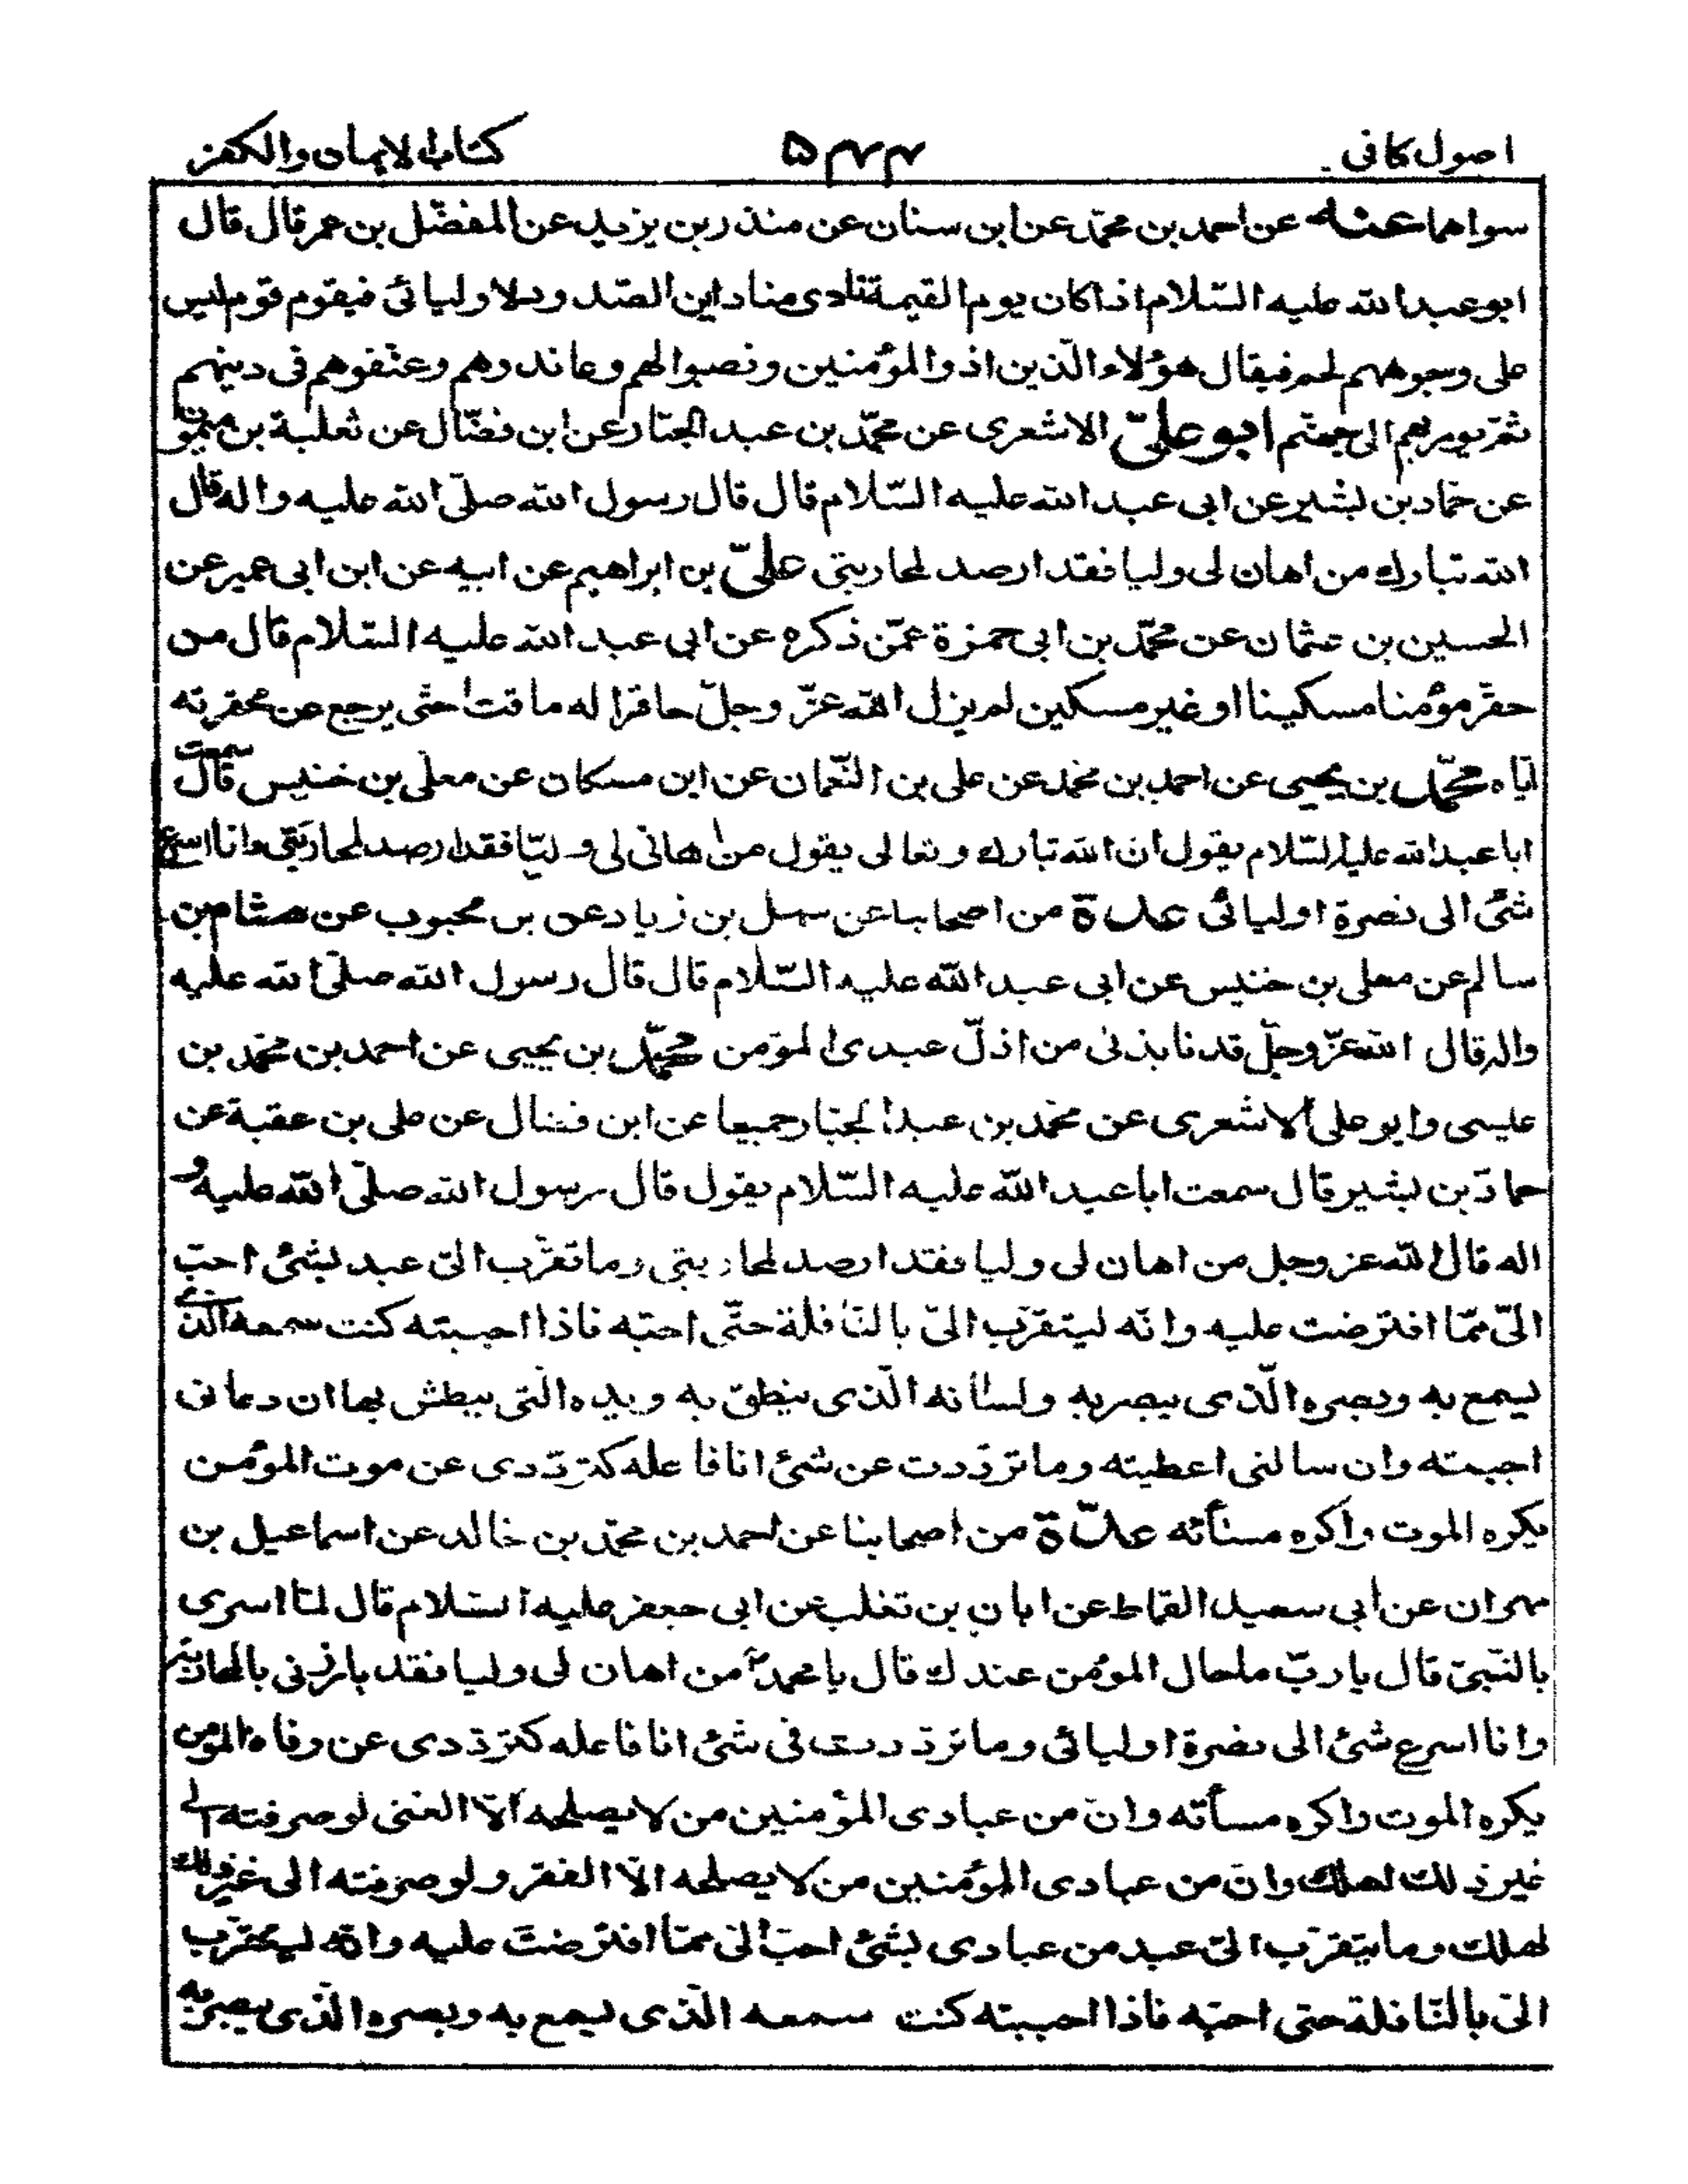 اصول كافى
۵۴۴
كتاب الايمان والكفر
سواهما عنه عن احمد بن محمّد عن ابن سنان عن منذر بن يزيد عن المفضّل بن عمر قال قال
ابو عبد الله عليه السّلام اذا كان يوم القيمة نادى مناد اين الصّدود لاوليائى فيقوم قوم ليس
على وجوههم لحم فيقال هؤلاء الّذين اذوا المؤمنين ونصبوا لهم وعاندوهم وعنّفوهم فى دينهم
ثمّ يومر بهم الى جهنّم ابو علىّ الاشعرى عن محمّد بن عبد الجبّار عن ابن فضّال عن ثعلبة بن ميمون
عن حمّاد بن بشير عن ابى عبد الله عليه السّلام قال قال رسول الله صلّى الله عليه واله قال
الله تبارك من اهان لى وليا فقد ارصد لمحاربتى علىّ بن ابراهيم عن ابيه عن ابن ابى عمير عن
الحسين بن عثمان عن محمّد بن ابى حمزة عمّن ذكره عن ابى عبد الله عليه السّلام قال من
حقّر مؤمنا مسكينا او غير مسكين لم يزل الله عزّ وجلّ حاقرا له ماقتا حتّى يرجع عن محقرته
ايّاه محمّد بن يحيى عن احمد بن محمّد عن على بن النّعمان عن ابن مسكان عن معلّى بن خنيس قال سمعت
ابا عبد الله عليه السّلام يقول انّ الله تبارك وتعالى يقول من اهان لى وليّا فقد ارصد لمحاربتى وانا اسرع
شئ الى نصرة اوليائى عدة من اصحابنا عن سهل بن زياد عن بن محبوب عن هشام بن
سالم عن معلى بن خنيس عن ابى عبد الله عليه السّلام قال قال رسول الله صلّى الله عليه
واله قال الله عزّ وجلّ قد نابذنى من اذلّ عبدى المؤمن محمّد بن يحيى عن احمد بن محمّد بن
عليسى وابو على الاشعرى عن محمّد بن عبد الجبّار جميعا عن ابن فضال عن على بن عقبة عن
حمادّ بن بشير قال سمعت ابا عبد الله عليه السّلام يقول قال رسول الله صلّى الله عليه و
اله قال الله عز وجل من اهان لى وليا فقد ارصد لمحاربتى وما تقرّب الىّ عبد بشئ احبّ
الىّ ممّا افترضت عليه وانّه ليتقرّب الىّ بالنّافلة حتّى احبّه فاذا احببته كنت سمعه الّذى
يسمع به وبصره الّذى يبصر به ولسانه الّذى ينطق به ويده الّتى يبطش بها ان دعانى
اجبته وان سالنى اعطيته وما تردّدت عن شئ انا فاعله كتردّدى عن موت المؤمن
يكره الموت واكره مسائته عدّة من اصحابنا عن احمد بن محمّد بن خالد عن اسماعيل بن
مهران عن أبى سعيد القمّاط عن ابان بن تغلب عن ابى جعفر عليه السّلام قال لمّا اسرى
بالنّبىّ قال يا ربّ ما حال المؤمن عندك قال يا محمّد من اهان لى وليا فقد بارزنى بالمحاربة
وانا اسرع شئ الى نصرة اوليائى وما تردّدت فى شئ انا فاعله كتردّدى عن وفاة المؤمن
يكره الموت واكره مسأته وانّ من عبادى المؤمنين من لا يصلحه الّا الغنى لو صرفته الى
غير ذلك لهلك وانّ من عبادى المؤمنين من لا يصلحه الّا الفقر ولو صرفته الى غير ذلك
لهلك وما يتقرّب الىّ عبد من عبادى بشئ احبّ الىّ ممّا افترضت عليه وانّه ليتقرّب
الىّ بالنّافلة حتى احبّه فاذا احببته كنت سمعه الّذى يسمع به وبصره الّذى يبصر به